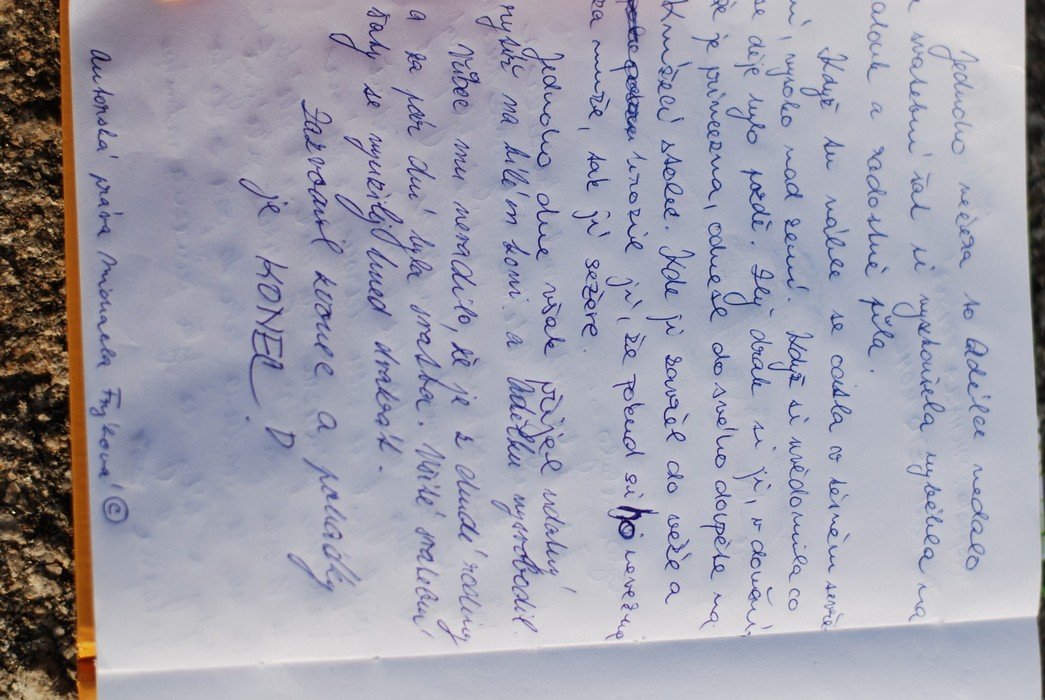 Jednoho večera to Adélce nedalo
svatební šat si vyzkoušela vyběhla na
palouk a radostně pěla.
Když tu náhle se ocitla v těsném
ní, vysoko nad zemí. Když si uvědomila co
se děje bylo pozdě. Zlý drak si ji, v domění,
že je princezna, odnesl do svého doupěte na
Kmíščí stolec. Kde ji zavřel do věže a
hrozil jí, že pokud si ho nevezme
za muže, tak ji sežere.
Jednoho dne však přijel udatný
rytíř na bílém koni a Adélku vysvobodil.
Vůbec mu nevadilo, že je z chudé rodiny
a za pár dní byla svatba. Ušité svatební
šaty se využily hned dvakrát.
Zazvonil zvonec a pohádky
je KONEC. D
Autorská práva Michaela Frýbová ©